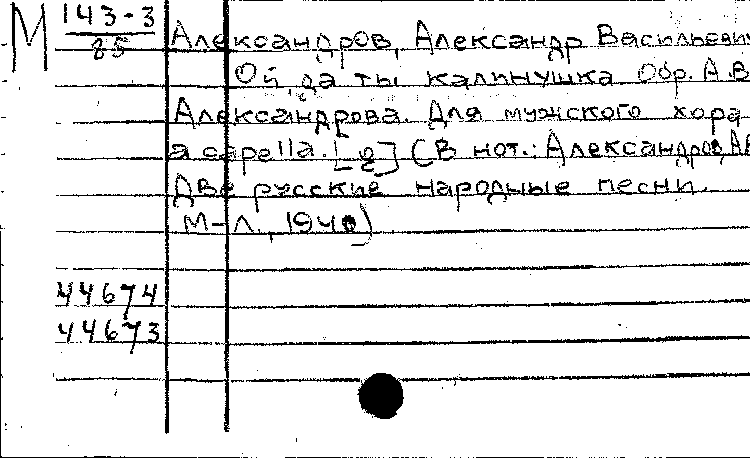 М 143-3
85
Александров, Александр Васильевич
Ой, да ты калинушка Обр. А.В.
Александрова. Для мужского хора
a capella. [g] (В нот.: Александров, АВ
Две русские народные песни.
М-Л., 1940)
44674
44673